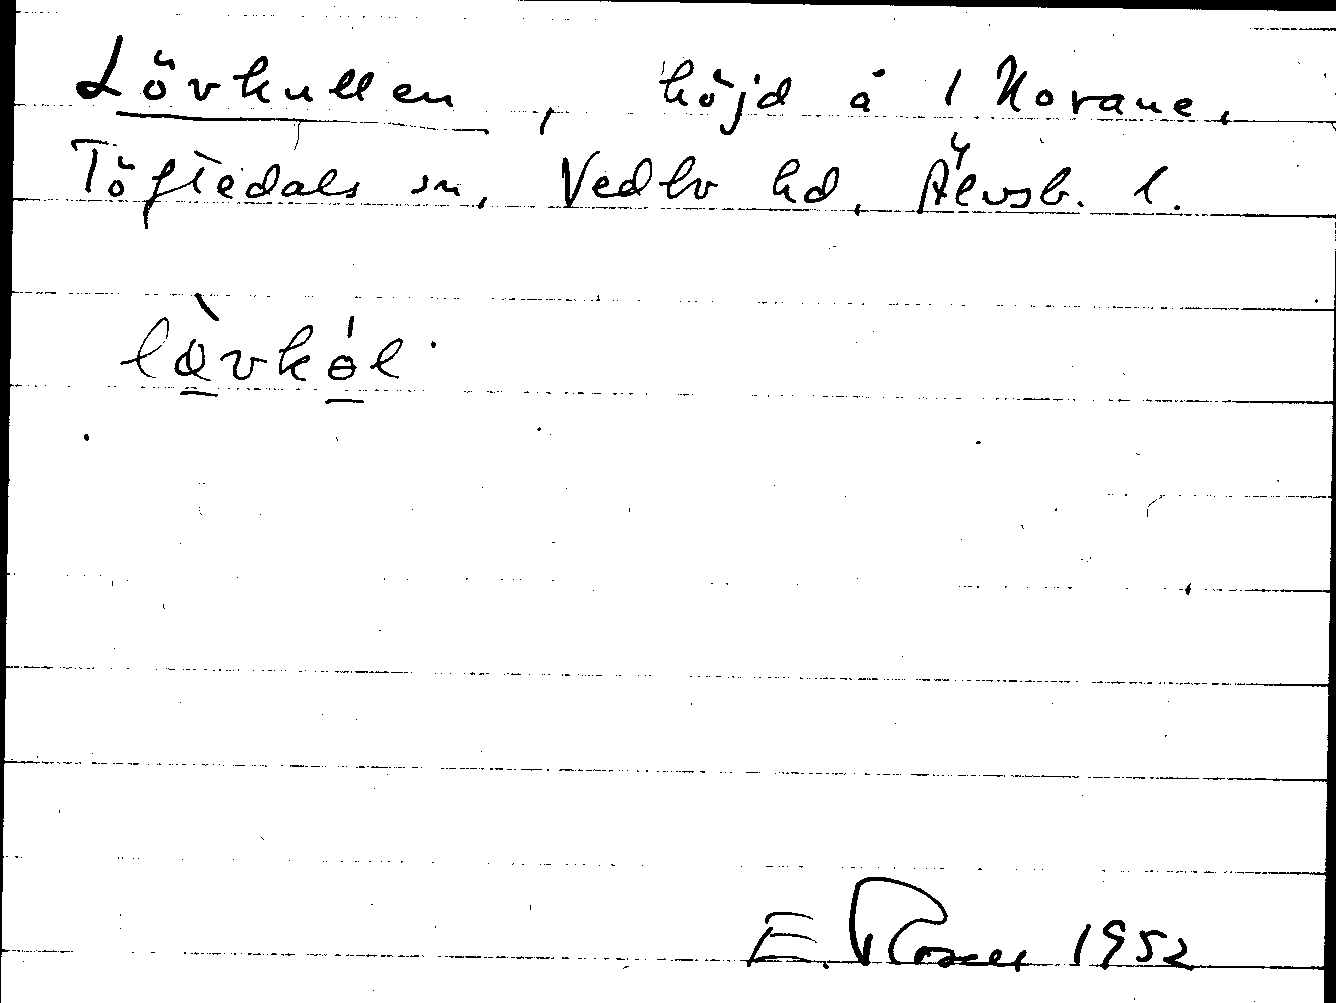 Lövkullen, höjd å 1 Norane,
Töftedals sn, Vedbo hd, Älvsb. l.
lə̀vkɵ́l
E. 1952